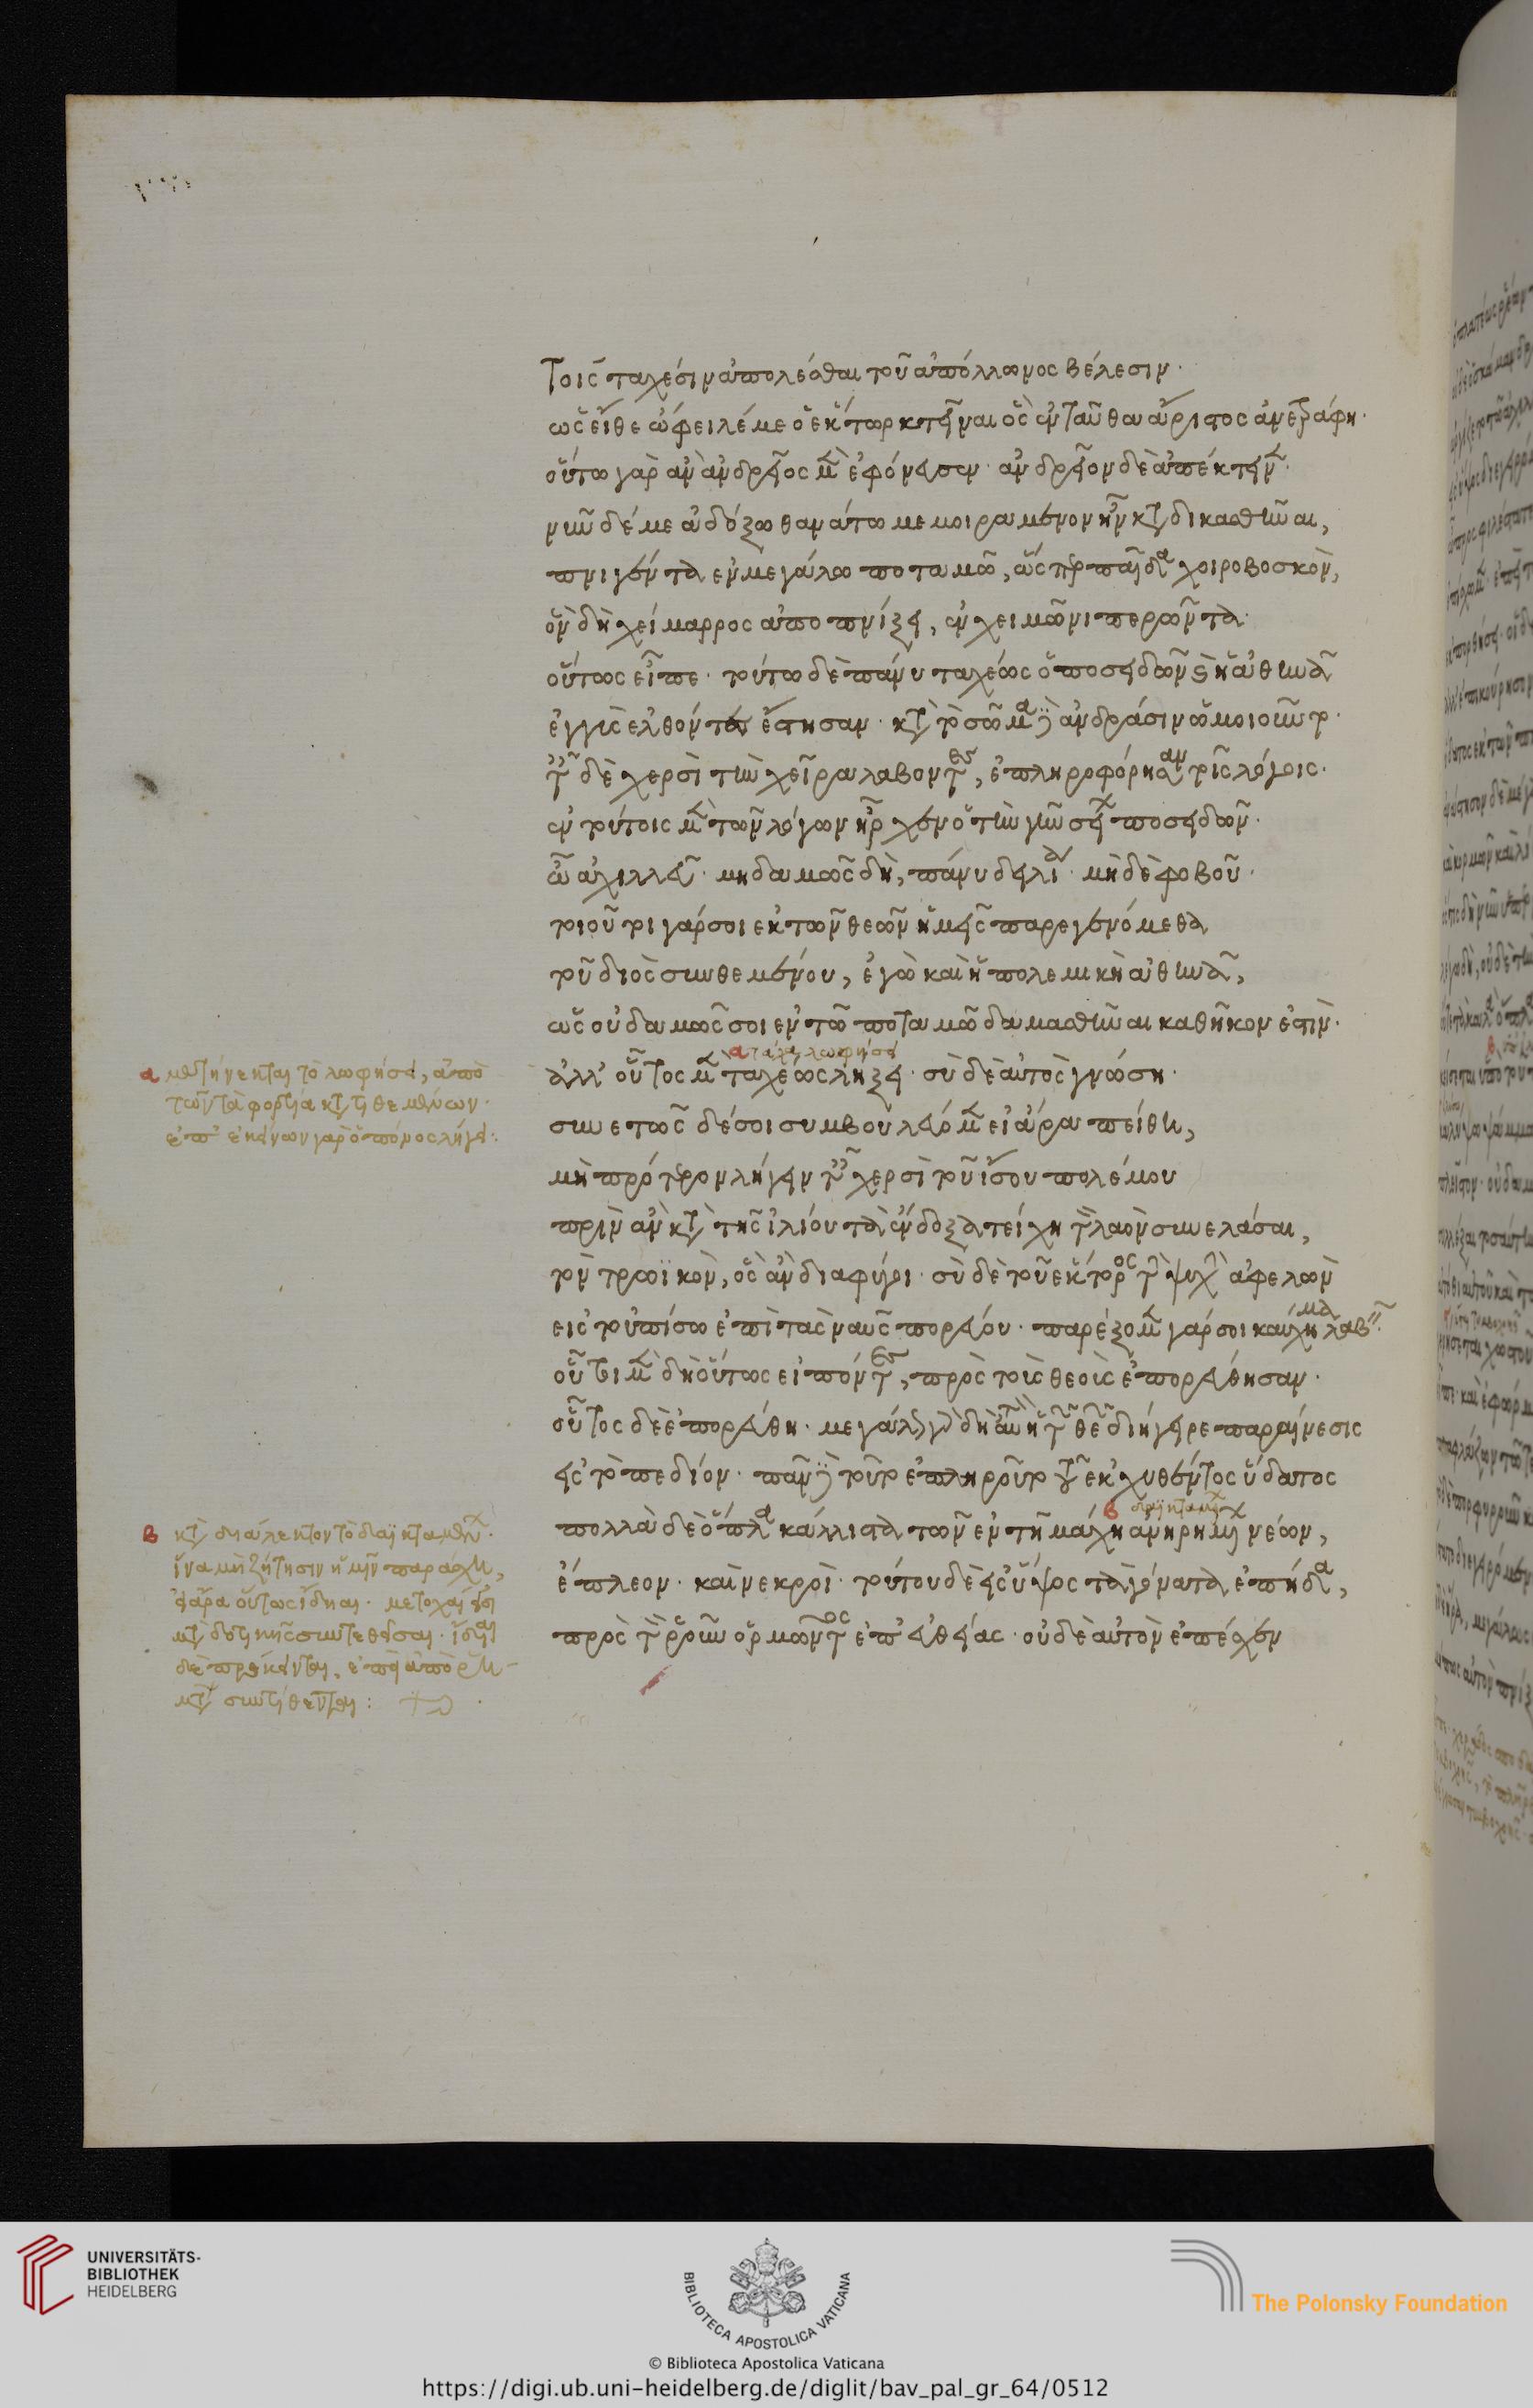 τοῖς ταχέσιν ἀπολέσθαι τοῦ ἀπόλλωνος βέλεσιν·
ὡς εἴθε ὤφειλέ με ὁ ἕκτωρ κτεῖναι ὃς ἐνταῦθα ἄριστος ἀνετράφη·
οὕτω γὰρ ἂν ἀνδρεῖος μὲν ἐφόνευσεν· ἀνδρεῖον δὲ ἀπέκτεινε·
νῦν δέ με ἀδόξω θανάτω μεμοιραμένον ἦν καταδικασθῆναι,
πνιγέντα ἐν μεγάλω ποταμῶ, ὥσπερ παῖδα χοιροβοσκὸν,
ὃν δὴ χείμαρρος ἀποπνίξει, ἐν χειμῶνι περῶντα·
οὕτως εἶπε· τούτω δὲ πάνυ ταχέως ὁ ποσειδῶν καὶ ἡ ἀθηνᾶ
ἐγγὺς ἐλθόντα ἔστησαν· κατὰ τὸ σῶμα δὲ ἀνδράσιν ὡμοιοῦντο·
ταῖς δὲ χερσὶ τὴν χεῖρα λαβόντες, ἐπληροφόρησαν τοῖς λόγοις·
ἐν τούτοις μὲν τῶν λόγων ἦρχεν ὁ τὴν γῆν σείων ποσειδῶν·
ὦ ἀχιλλεῦ· μηδαμῶς δὴ, πάνυ δειλία· μηδὲ φοβοῦ·
τοιοῦτοι γάρ σοι ἐκ τῶν θεῶν ἡμεῖς παρεγενόμεθα
τοῦ διὸς συνθεμένου, ἐγὼ καὶ ἡ πολεμικὴ ἀθηνᾶ,
ὡς οὐδαμῶς σοι ἐν τῶ ποταμῶ δαμασθῆναι καθῆκον ἐστὶν·
α τάχα λωφήσει
ἀλλ' οὗτος μὲν ταχέως λήξει· σὺ δὲ αὐτὸς γνώση·
συνετῶς δέ σοι συμβουλεύομεν εἰ ἄρα πείθη,
μὴ πρότερον λήγειν τὰς χερσὶ τοῦ ἴσου πολέμου
πρὶν ἂν κατὰ τῆς ἰλίου τὰ ἔνδοξα τείχη τὸν λαὸν συνελάσαι,
τὸν τρωϊκὸν, ὃς ἂν διαφύγοι· σὺ δὲ τοῦ ἕκτορος τὴν ψυχὴν ἀφελὼν
εἰς τοὐπίσω ἐπὶ τὰς ναῦς πορεύου· παρέξομεν γάρ σοι καύχημα λαβεῖν·
οὗτοι μὲν δὴ οὕτως εἰπόντες, πρὸς τοὺς θεοὺς ἐπορεύθησαν·
οὗτος δὲ ἐπορεύθη· μεγάλως γὰρ δὴ αὐτὸν ἡ τῶν θεῶν διήγειρε παραίνεσις
εἰς τὸ πεδίον· πᾶν δὲ τοῦτο ἐπληροῦτο τοῦ ἐκχυθέντος ὕδατος
β δαϊκταμένων
πολλὰ δὲ ὅπλα κάλλιστα τῶν ἐν τῆ μάχη ἀνηρημένων νέων,
ἔπλεον· καὶ νεκροὶ· τούτου δὲ εἰς ὕψος τὰ γόνατα ἐπήδα,
πρὸς τὸν ῥοῦν ὁρμῶντος ἐπ' εὐθείας· οὐδὲ αὐτὸν ἐπέσχεν
α μετήνεκται τὸ λωφήσει, ἀπὸ
τῶν τὰ φορτία κατατιθεμένων·
ἐπ' ἐκείνων γὰρ ὁ πόνος λήγει:
β κατὰ διάλεκτον τὸ δαϊκταμένων·
ἵνα μὴ ζήτησιν ἡμῖν παράσχη,
εἰ ἄρα οὕτως ἴδηται· μετοχαὶ
μετὰ δοτικῆς συντεθεῖσαι·